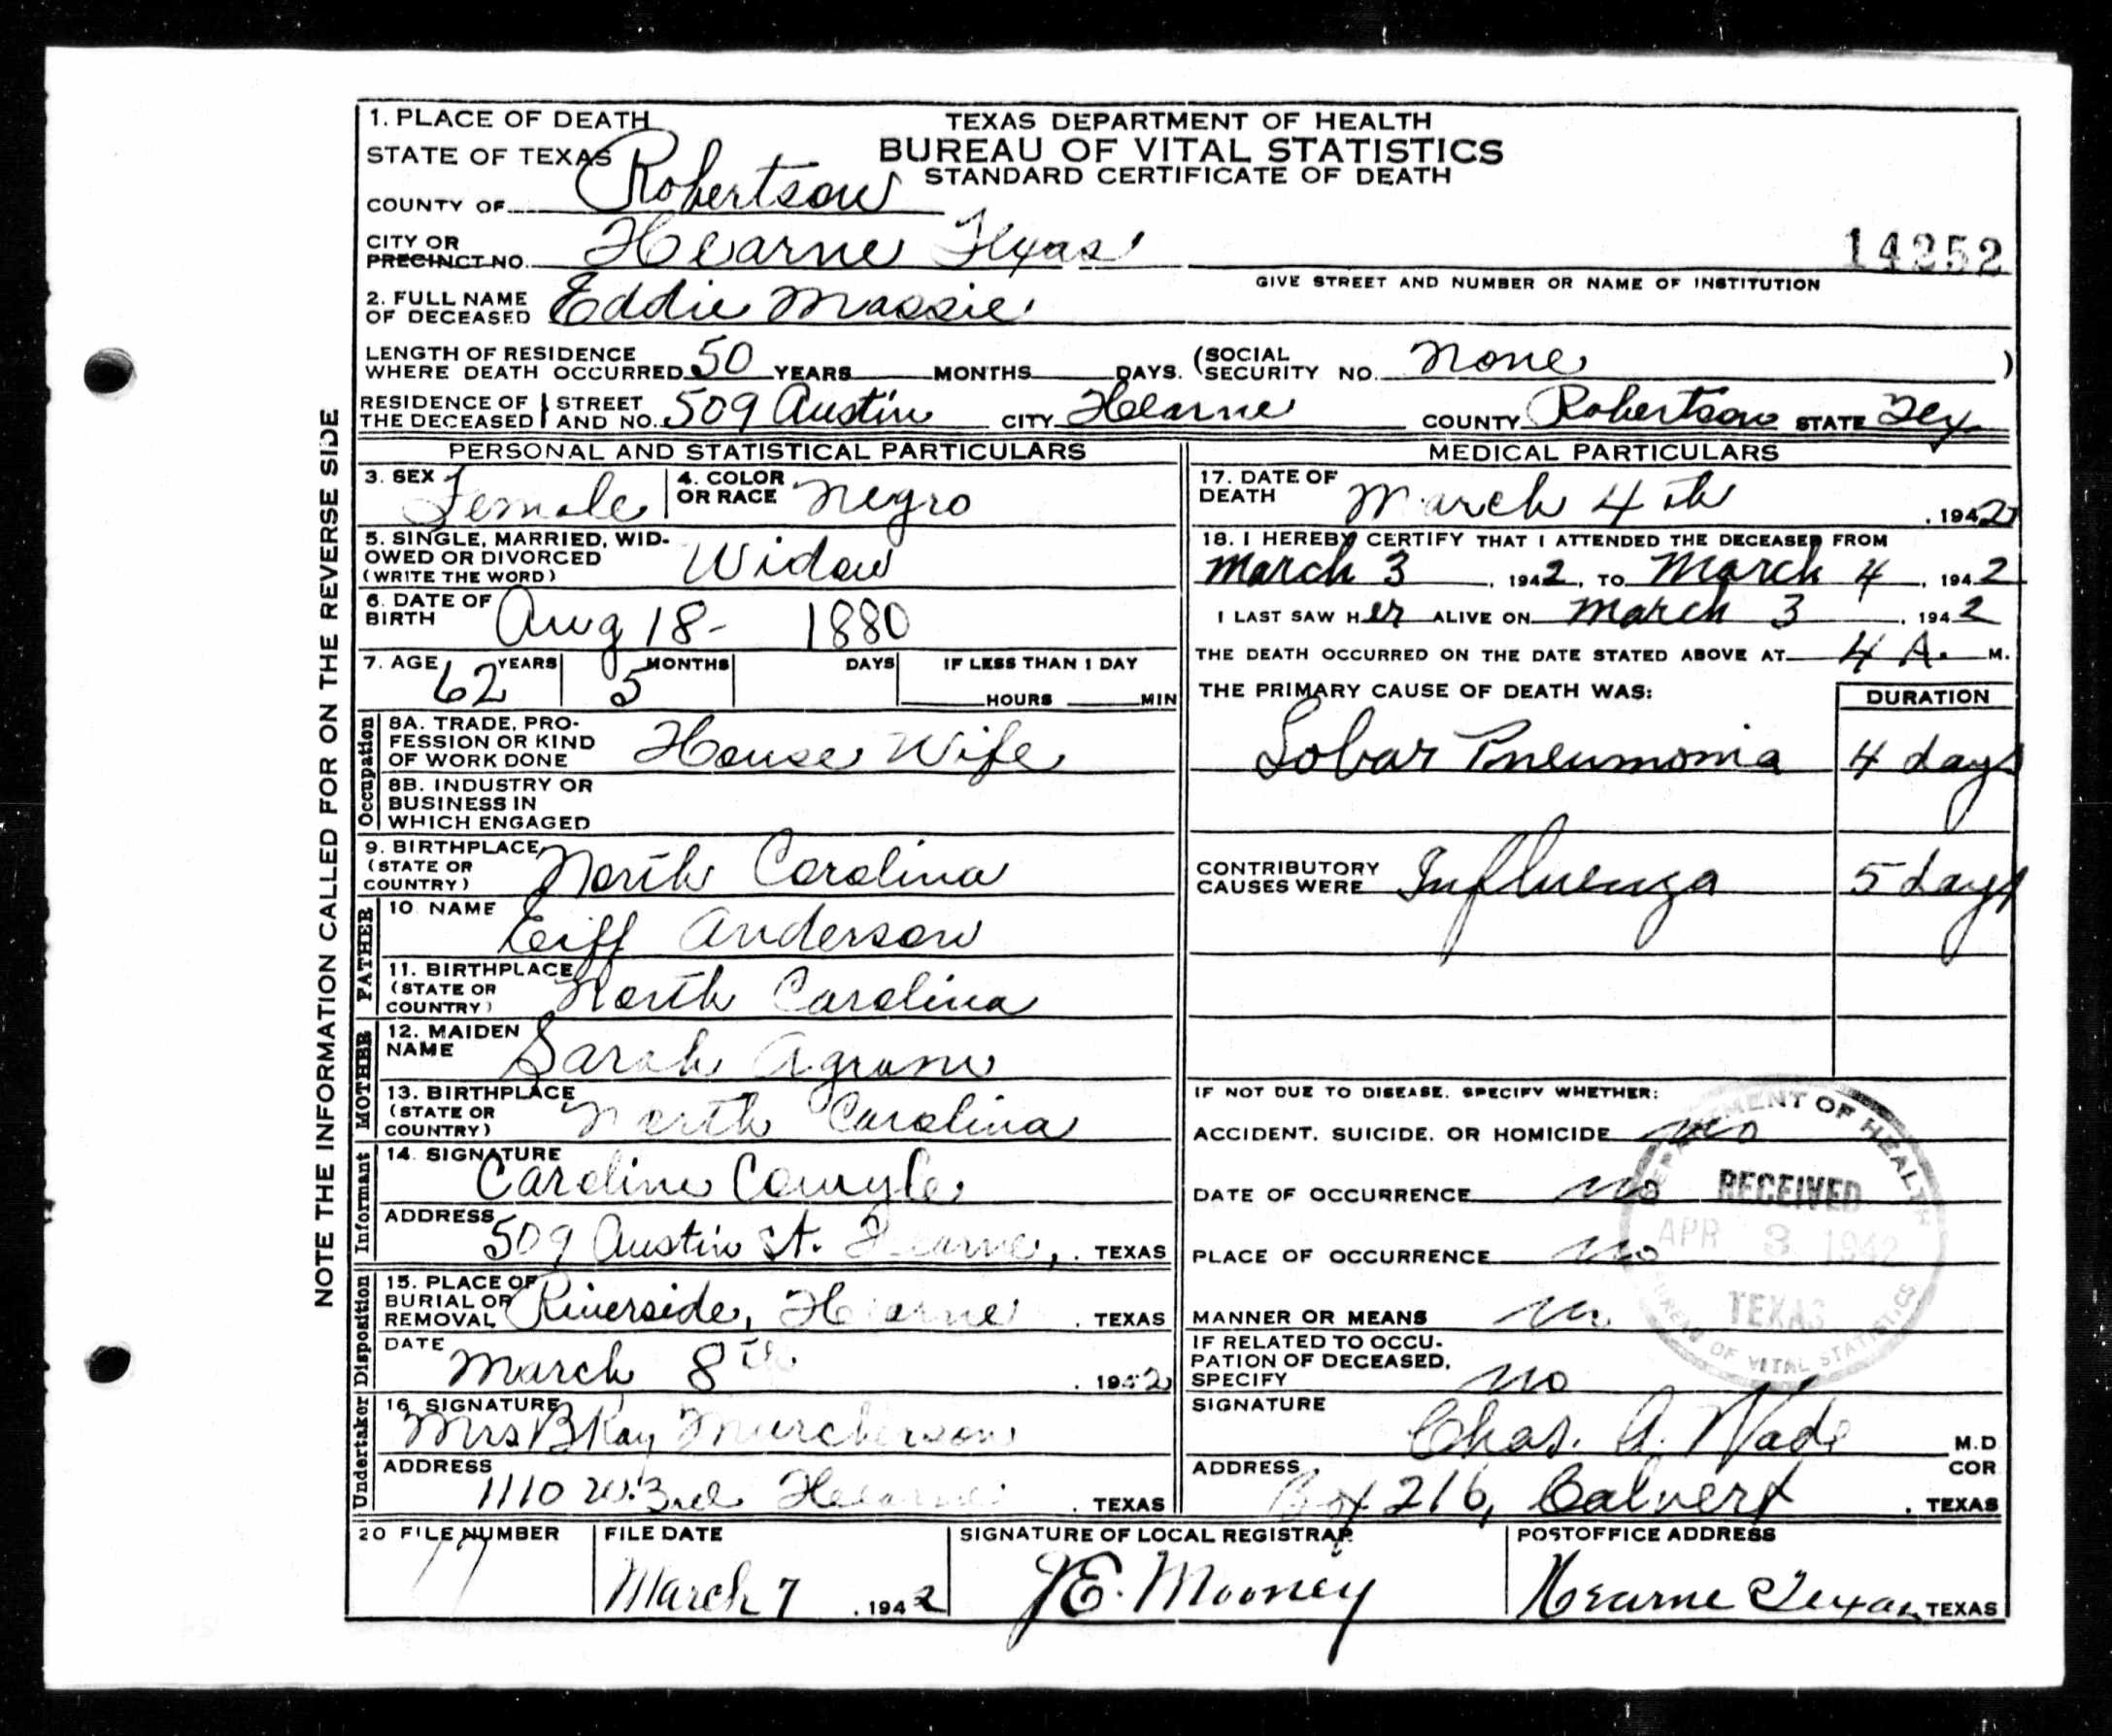 1. PLACE OF DEATH
STATE OF TEXAS
COUNTY OF Robertson
TEXAS DEPARTMENT OF HEALTH
BUREAU OF VITAL STATISTICS
STANDARD CERTIFICATE OF DEATH
CITY OR PRECINCT NO. Hearne Texas
14252
GIVE STREET AND NUMBER OR NAME OF INSTITUTION
2. FULL NAME OF DECEASED Eddie Massie
LENGTH OF RESIDENCE WHERE DEATH OCCURRED 50 YEARS MONTHS DAYS. (SOCIAL SECURITY NO. None )
RESIDENCE OF THE DECEASED STREET AND NO. 509 Austin CITY Hearne COUNTY Robertson STATE Tex
NOTE THE INFORMATION CALLED FOR ON THE REVERSE SIDE
PERSONAL AND STATISTICAL PARTICULARS
3. SEX Female 4. COLOR OR RACE Negro
5. SINGLE, MARRIED, WIDOWED OR DIVORCED (WRITE THE WORD) Widow
6. DATE OF BIRTH Aug 18- 1880
7. AGE 62 YEARS 5 MONTHS DAYS IF LESS THAN 1 DAY HOURS MIN
Occupation
8A. TRADE, PROFESSION OR KIND OF WORK DONE House Wife
8B. INDUSTRY OR BUSINESS IN WHICH ENGAGED
9. BIRTHPLACE (STATE OR COUNTRY) North Carolina
FATHER
10 NAME Anderson
11. BIRTHPLACE (STATE OR COUNTRY) North Carolina
MOTHER
12. MAIDEN NAME Sarah
13. BIRTHPLACE (STATE OR COUNTRY) North Carolina
Informant
14. SIGNATURE Caroline
ADDRESS 509 Austin St. Hearne, TEXAS
Disposition
15. PLACE OF BURIAL OR REMOVAL Riverside, Hearne TEXAS
DATE March 8th 1942
Undertaker
16 SIGNATURE Mrs B Ray Murcherson
ADDRESS 1110 W. 3rd Hearne TEXAS
MEDICAL PARTICULARS
17. DATE OF DEATH March 4th, 1942
18. I HEREBY CERTIFY THAT I ATTENDED THE DECEASED FROM
March 3, 1942, TO March 4, 1942
I LAST SAW HER ALIVE ON March 3, 1942
THE DEATH OCCURRED ON THE DATE STATED ABOVE AT 4 A. M.
THE PRIMARY CAUSE OF DEATH WAS: DURATION
Lobar Pneumonia 4 days
CONTRIBUTORY CAUSES WERE Influenza 5 days
IF NOT DUE TO DISEASE, SPECIFY WHETHER:
ACCIDENT, SUICIDE, OR HOMICIDE no
DATE OF OCCURRENCE no
PLACE OF OCCURRENCE no
MANNER OR MEANS no
IF RELATED TO OCCUPATION OF DECEASED, SPECIFY no
DEPARTMENT OF HEALTH
RECEIVED
APR 3 1942
TEXAS
BUREAU OF VITAL STATISTICS
SIGNATURE Chas. A. Wade M.D COR
ADDRESS Box 216, Calvert TEXAS
20 FILE NUMBER 17
FILE DATE March 7, 1942
SIGNATURE OF LOCAL REGISTRAR J E. Mooney
POSTOFFICE ADDRESS Hearne Texas, TEXAS